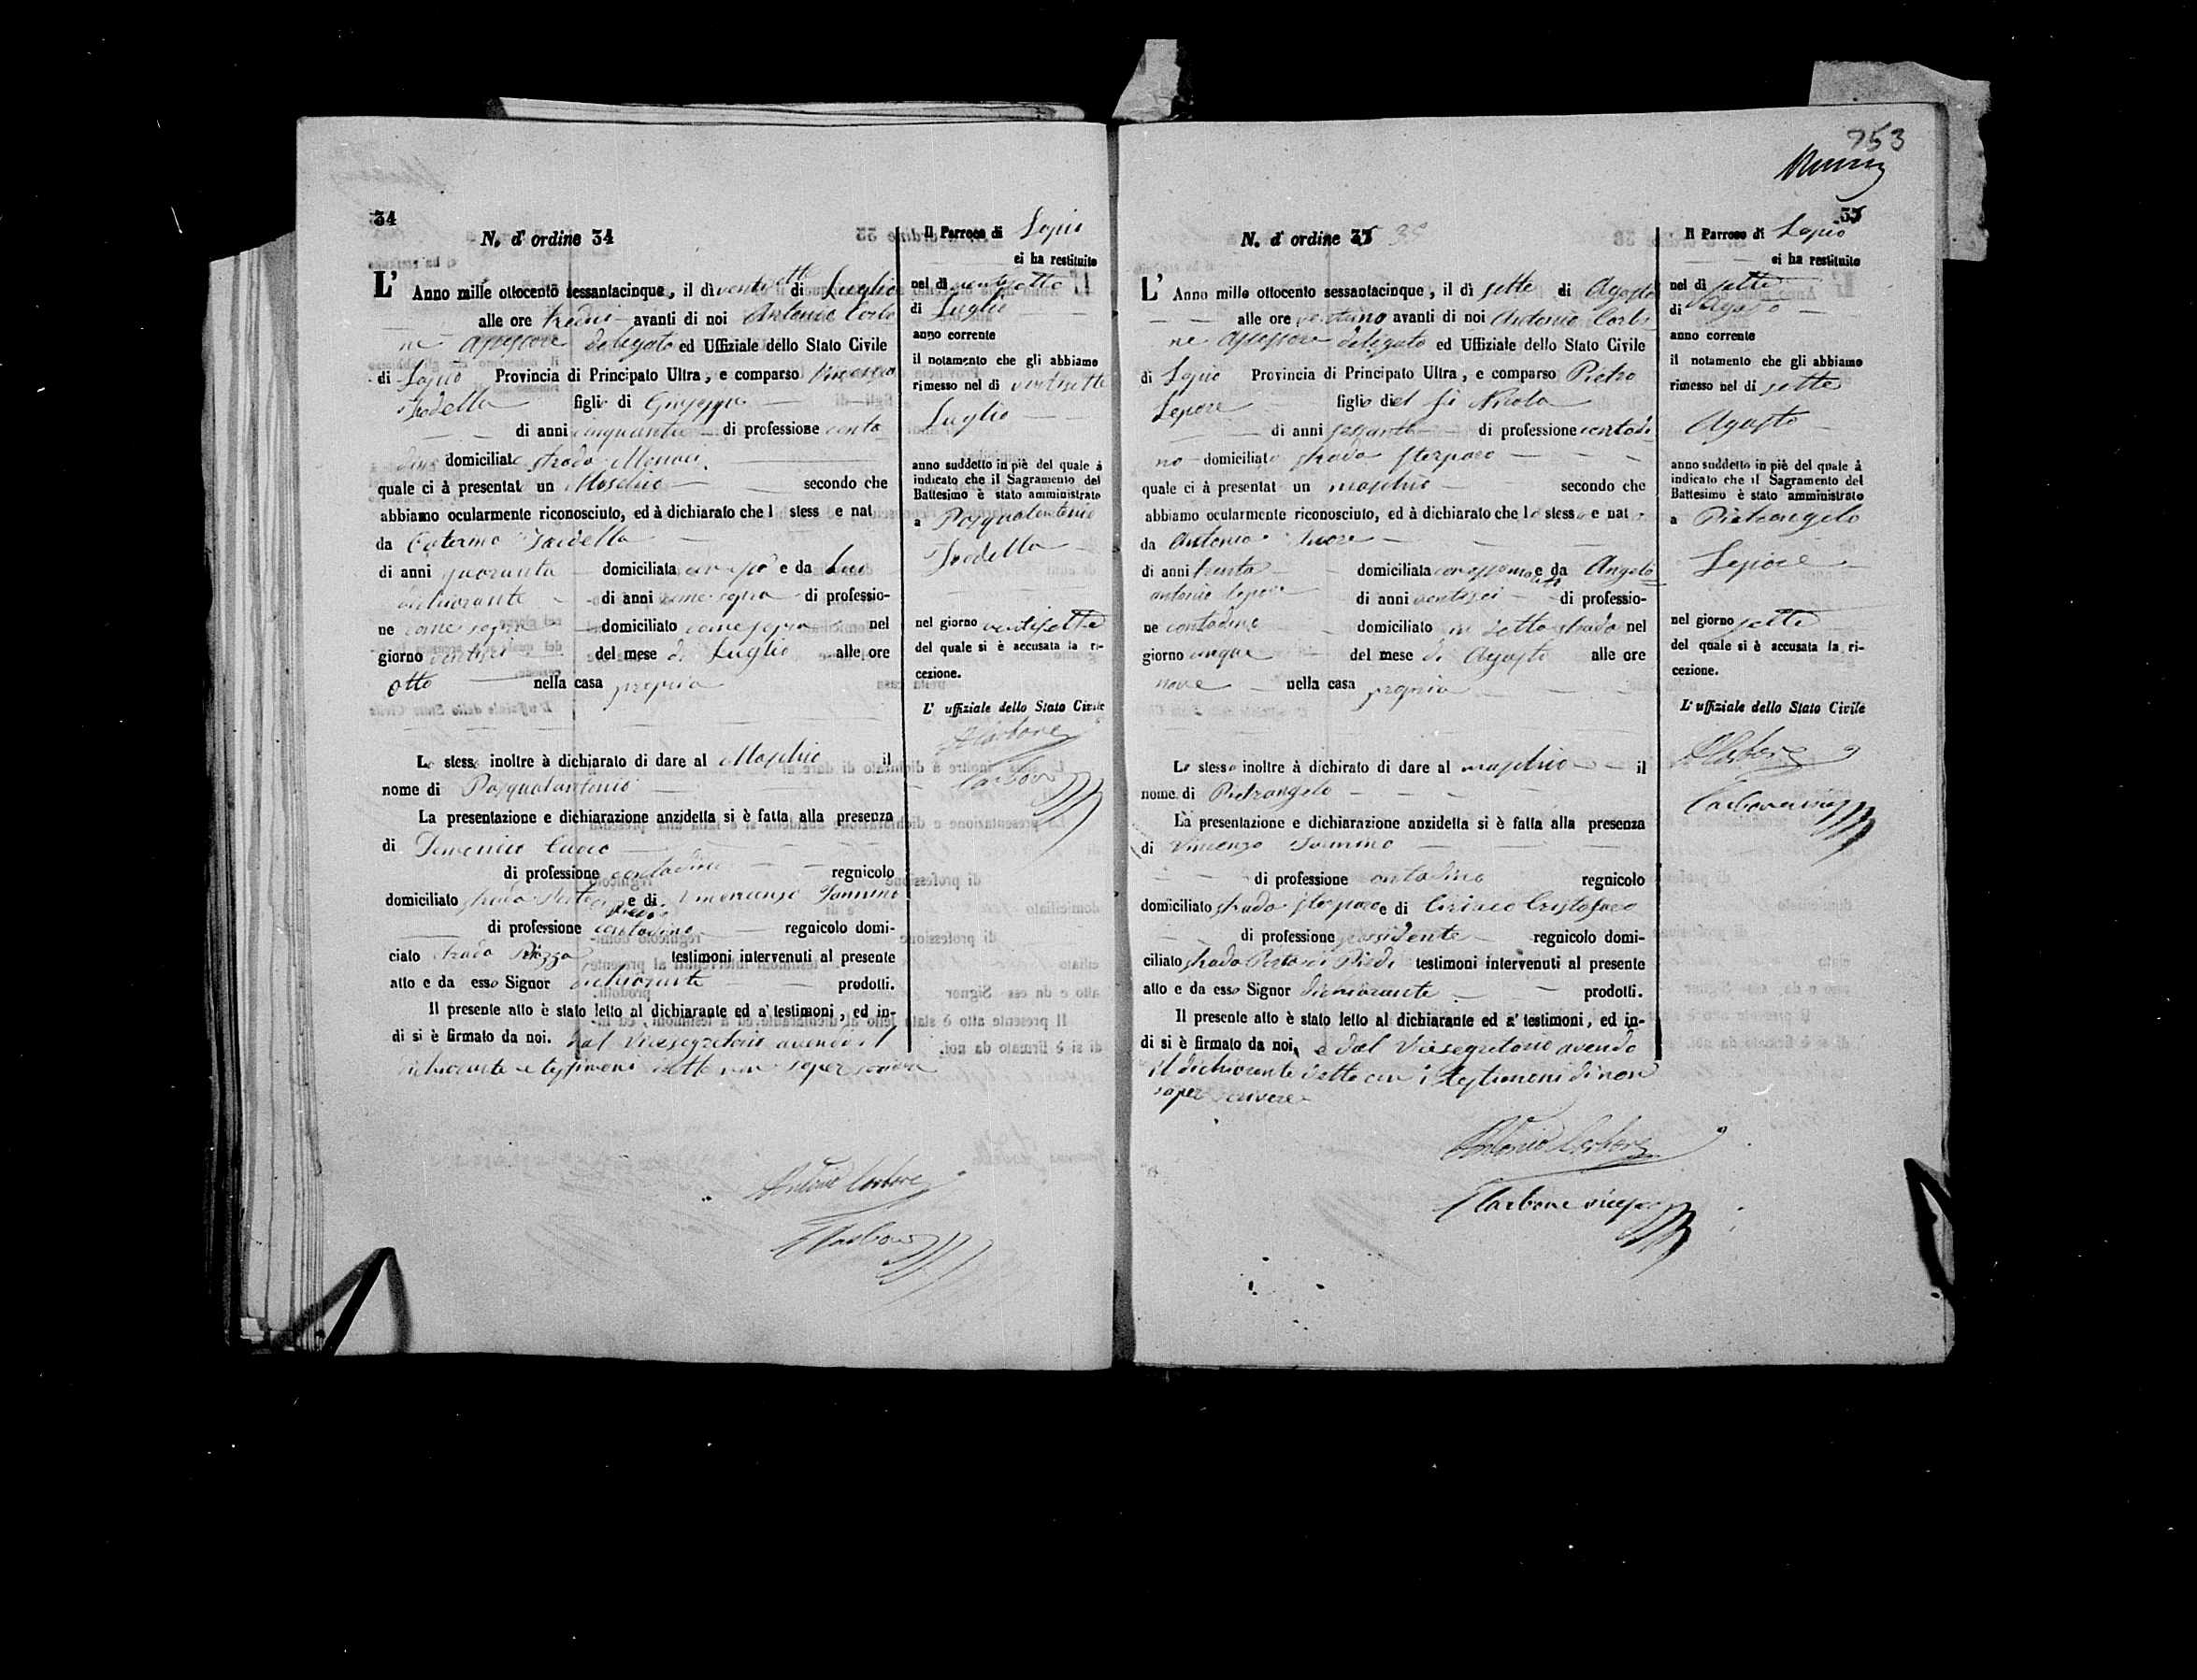 753
34
N. d' ordine 34
L' Anno mille ottocento sessantacinque, il dì ventisette di Luglio
alle ore tredici avanti di noi Antonio Carbo
ne Assessore delegato ed Uffiziale dello Stato Civile
di Lapio Provincia di Principato Ultra, e comparso Vincenzo
Iradella figlio di Giuseppe
di anni cinquanta di professione conta
dino domiciliato strada Monaci
quale ci à presentat un Maschio secondo che
abbiamo ocularmente riconosciuto, ed à dichiarato che l stess e nat
da Caterina
di anni quaranta domiciliata e da Lui
dichiarante di anni come sopra di professio-
ne come sopra domiciliato come sopra nel
giorno ventisei del mese di Luglio alle ore
otto nella casa propria
Lo stesso inoltre à dichiarato di dare al Maschio il
nome di Pasqualantonio
La presentazione e dichiarazione anzidetta si è fatta alla presenza
di Domenico Cuoco
di professione contadino regnicolo
domiciliato strada e di Vincenzo Iannino
di professione contadino regnicolo domi-
ciato strada Piazza testimoni intervenuti al presente
atto e da esso Signor dichiarante prodotti.
Il presente atto è stato letto al dichiarante ed a' testimoni, ed in-
di si è firmato da noi. dal Vicesegretario avendo il
dichiarante e testimoni detto non saper scrivere
Antonio Carbone
Carbone
Il Parroco di Lapio
ci ha restituito
nel dì ventisette
di Luglio
anno corrente
il notamento che gli abbiamo
rimesso nel dì ventisette
Luglio
anno suddetto in piè del quale à
indicato che il Sagramento del
Battesimo è stato amministrato
a Pasqualantonio
Iradella
nel giorno ventisette
del quale si è accusata la ri-
cezione.
L' uffiziale dello Stato Civile
A Carbone
Carbone
35
N. d' ordine 35 35
L' Anno mille ottocento sessantacinque, il dì sette di Agosto
alle ore ventuno avanti di noi Antonio Carbo
ne Assessore delegato ed Uffiziale dello Stato Civile
di Lapio Provincia di Principato Ultra, e comparso Pietro
Lepore figlio del fu Nicola
di anni sessanta di professione contadi
no domiciliato strada Sterparo
quale ci à presentat un maschio secondo che
abbiamo ocularmente riconosciuto, ed à dichiarato che lo stesso e nato
da Antonia
di anni trenta domiciliata e da Angelo
antonio Lepore di anni ventisei di professio-
ne contadino domiciliato in detta strada nel
giorno cinque del mese di Agosto alle ore
nove nella casa propria
Lo stesso inoltre à dichirato di dare al maschio il
nome di Pietrangelo
La presentazione e dichiarazione anzidetta si è fatta alla presenza
di Vincenzo Iannino
di professione contadino regnicolo
domiciliato strada Sterparo e di Ciriaco Cristofaro
di professione possidente regnicolo domi-
ciliato strada Porta di Piedi testimoni intervenuti al presente
atto e da esso Signor dichiarante prodotti.
Il presente atto è stato letto al dichiarante ed a' testimoni, ed in-
di si è firmato da noi, e dal Vicesegretario avendo
il dichiarante detto con i testimoni di non
saper scrivere
Antonio Carbone
Carbone
Il Parroco di Lapio
ci ha restituito
nel dì sette
di Agosto
anno corrente
il notamento che gli abbiamo
rimesso nel dì sette
Agosto
anno suddetto in piè del quale à
indicato che il Sagramento del
Battesimo è stato amministrato
a Pietrangelo
Lepore
nel giorno sette
del quale si è accusata la ri-
cezione.
L' uffiziale dello Stato Civile
A Carbone
Carbone